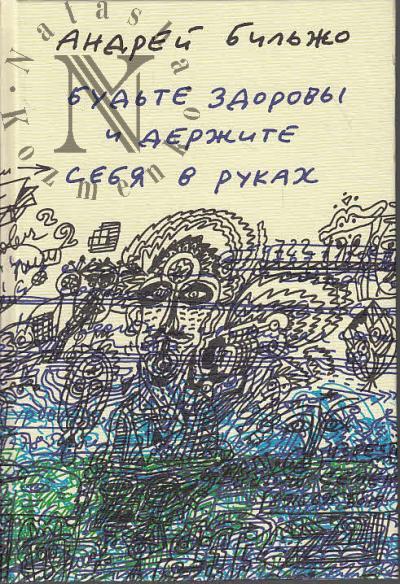 АНДРЕЙ БИЛЬЖО
БУДЬТЕ ЗДОРОВЫ
И ДЕРЖИТЕ
СЕБЯ В РУКАХ
Natasha Kozmenko
N